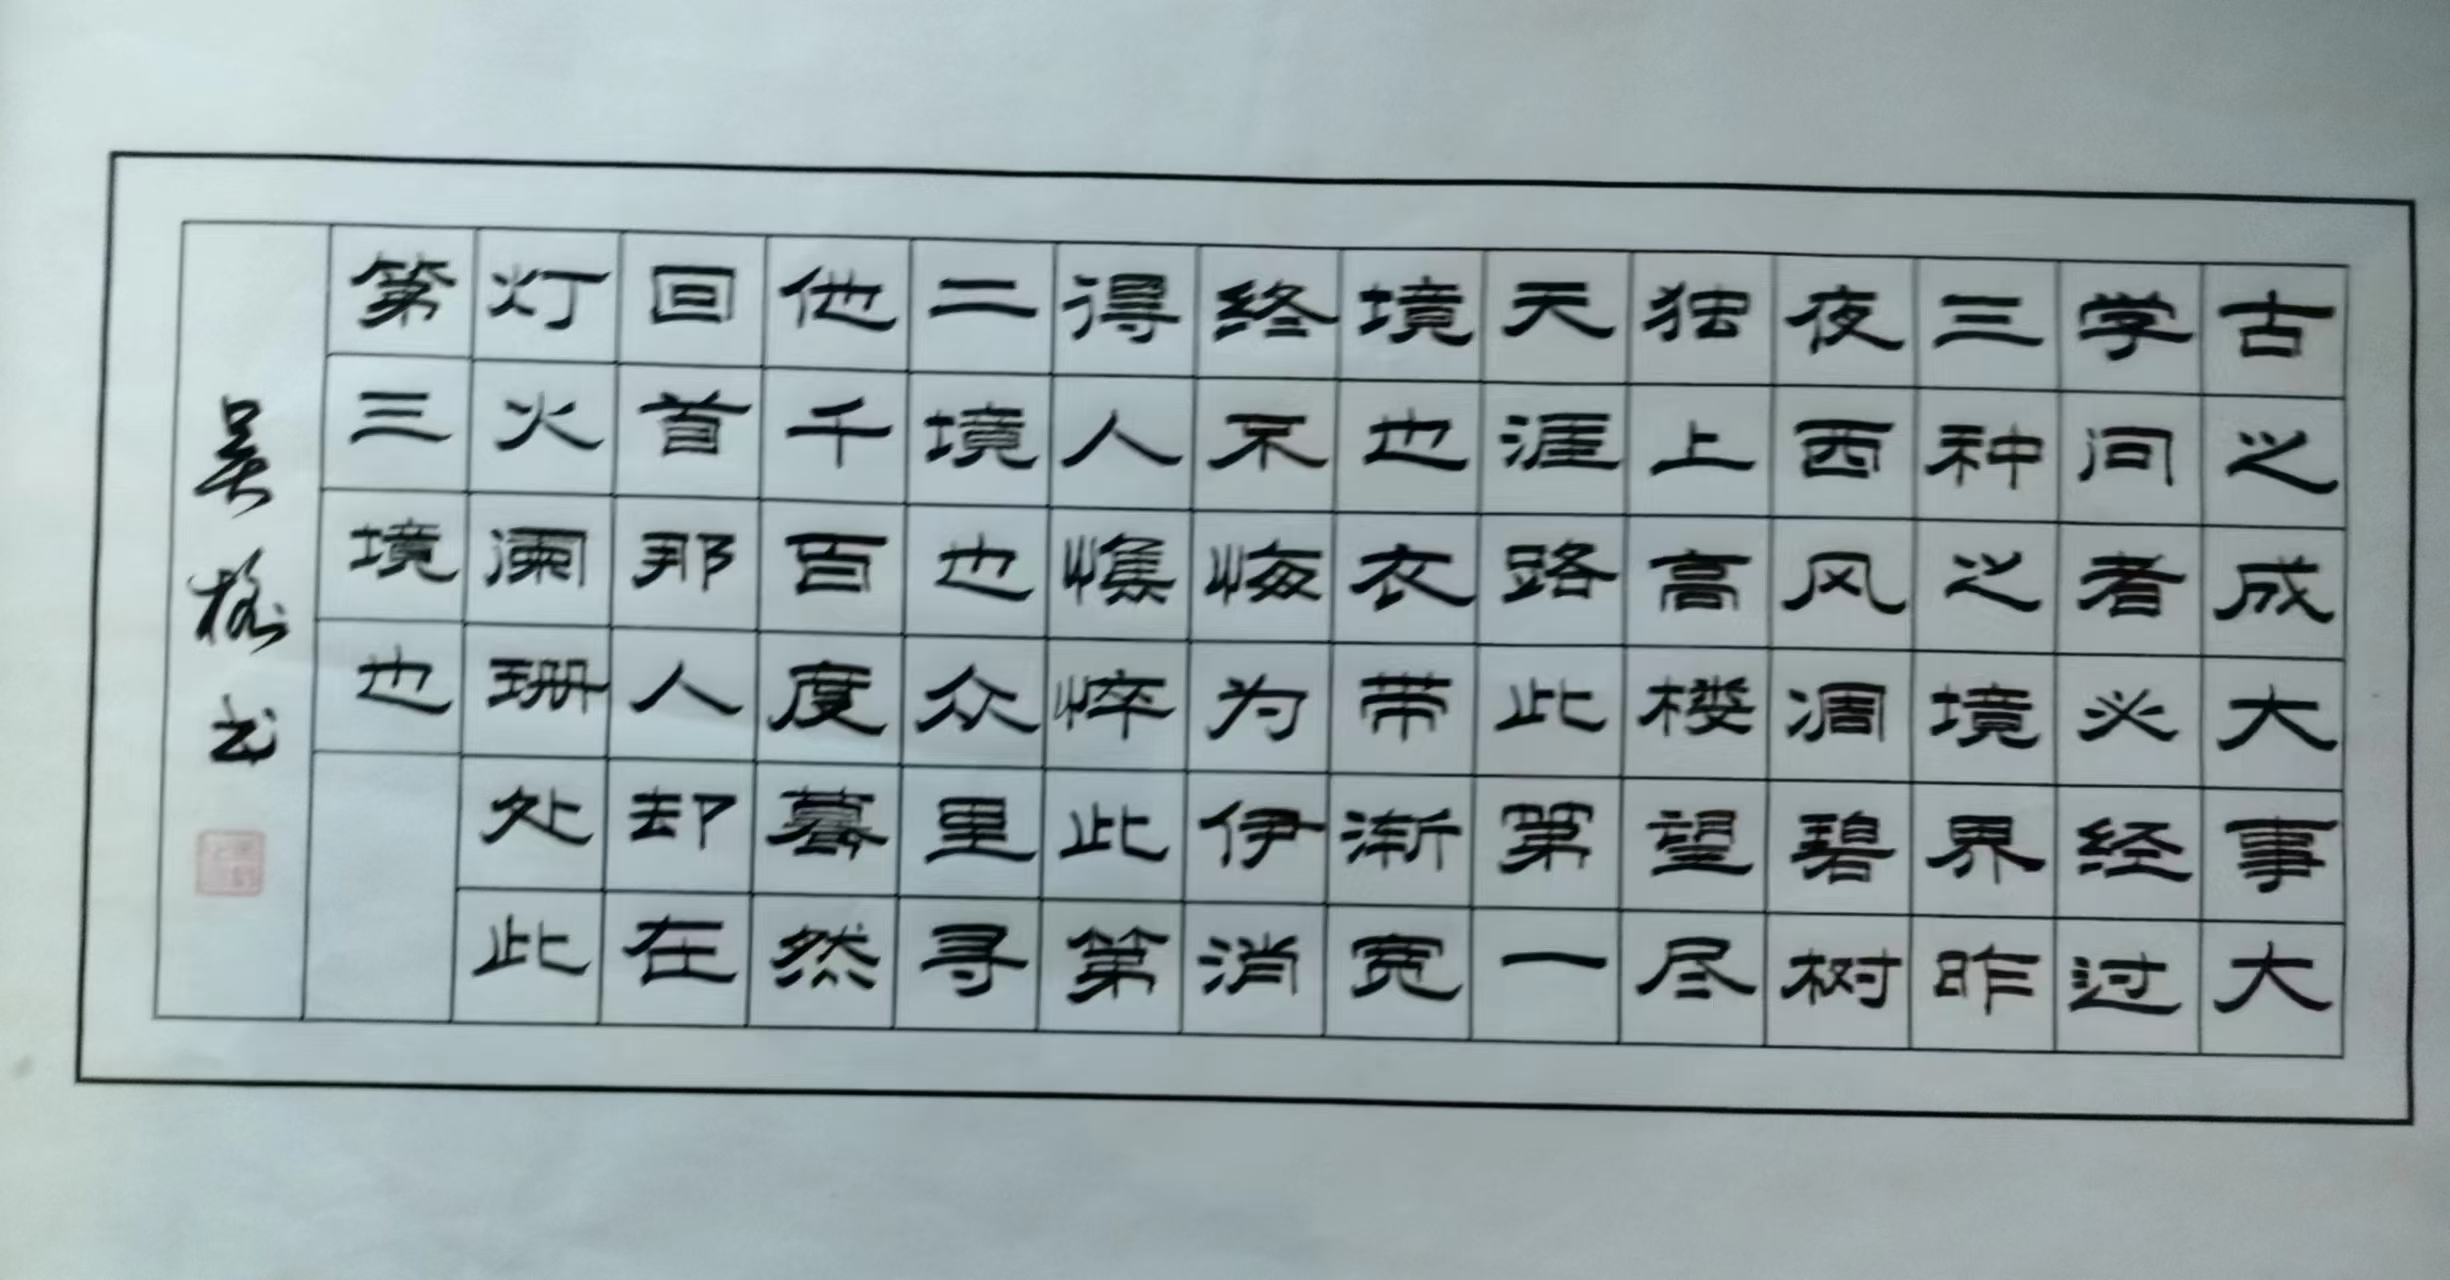 古之成大事大
学问者必经过
三种之境界昨
夜西风凋碧树
独上高楼望尽
天涯路此第一
境也衣带渐宽
终不悔为伊消
得人憔悴此第
二境也众里寻
他千百度蓦然
回首那人却在
灯火阑珊处此
第三境也
吴 书